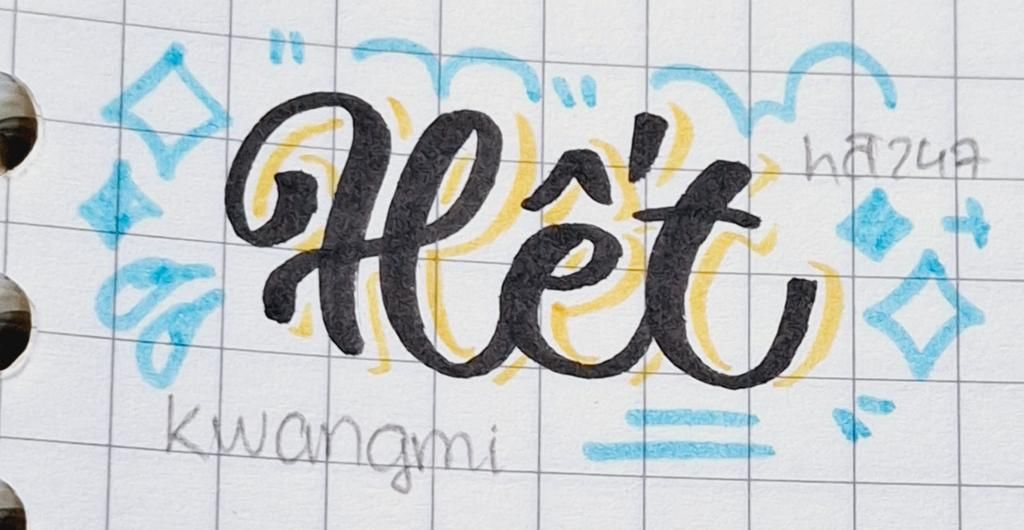 Hết
hđ247
kwangmi